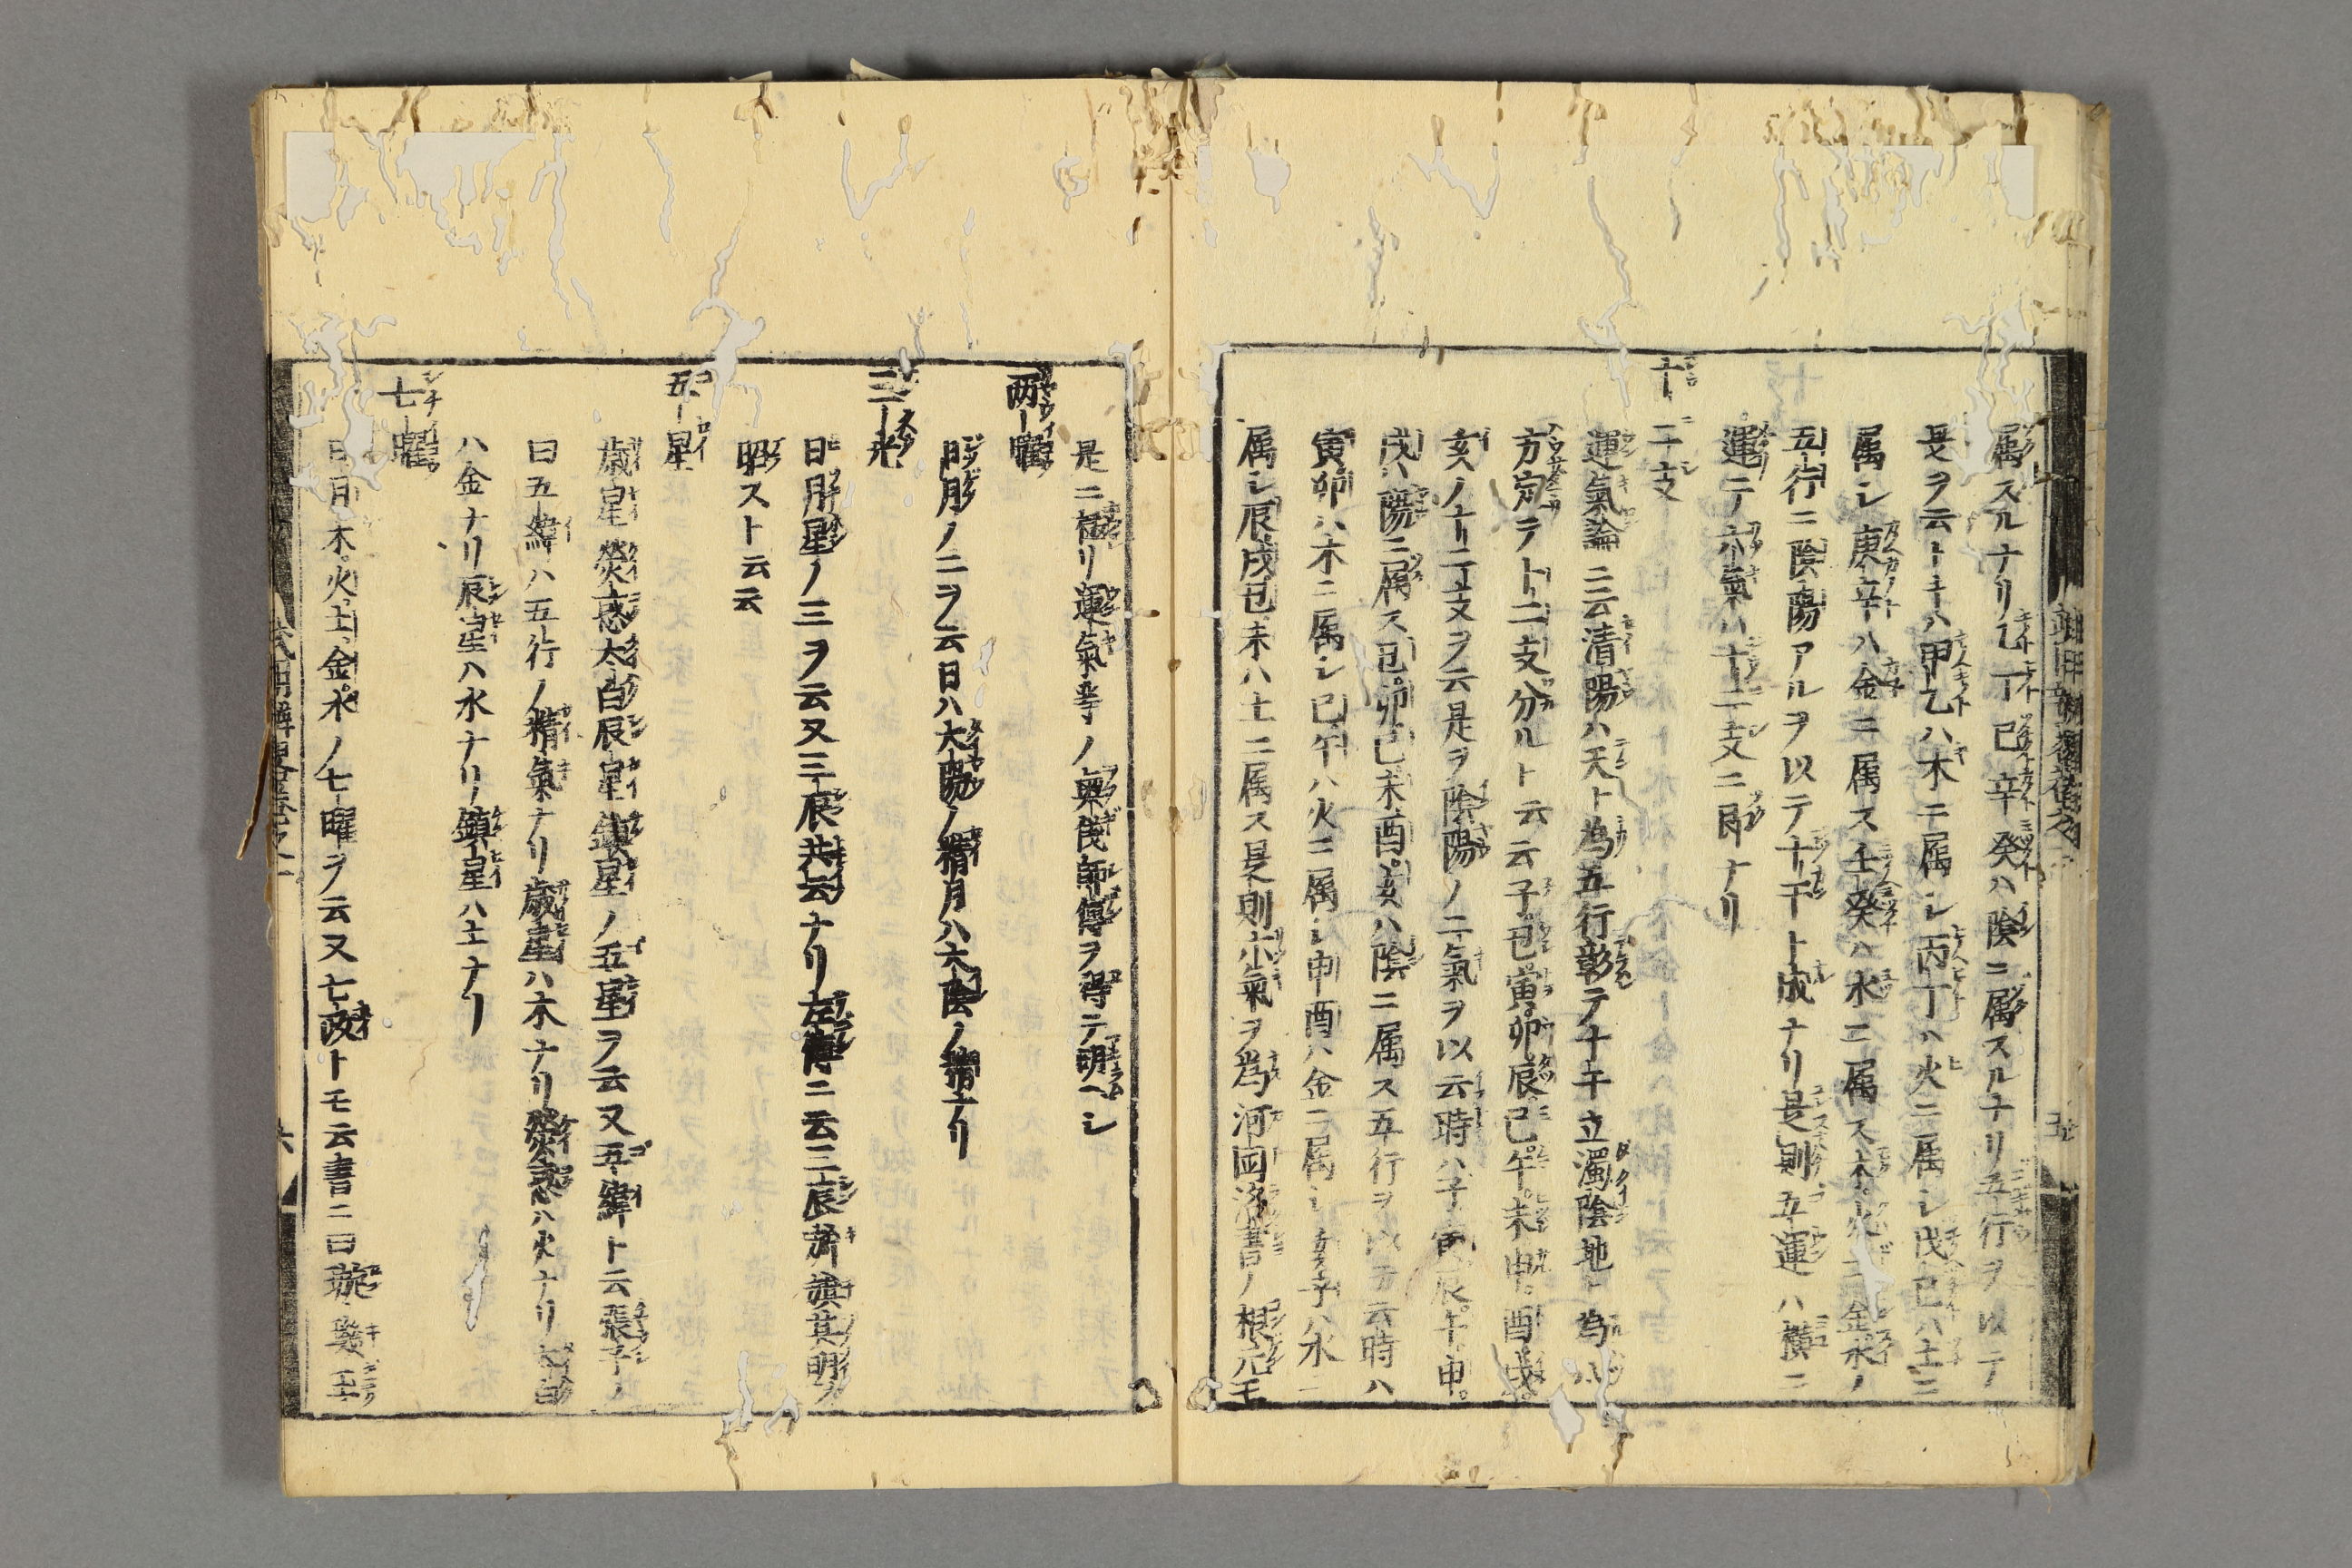 属スルナリ乙丁己辛癸ハ陰ニ属スルナリ五行ヲ以テ
長ヲ云トキハ甲乙ハ木ニ属シ丙丁ハ火ニ属シ戊己ハ土ニ
属シ庚辛ハ金ニ属ス壬癸ハ水ニ属ス木火土金水ノ
五行ニ陰陽アルヲ以テ十干ト成ナリ是則五運ハ横ニ
運テ六氣ハ十二支ニ即ナリ
十二支
運氣論ニ云清陽ハ天ト為五行彰テ十干立濁陰地ト為八
方定テト二支分ルト云云子丑寅卯辰巳午未申酉戌
亥ノ十二支ヲ云是ヲ陰陽ノ二氣ヲ以云時ハ子寅辰午申
戌ハ陽ニ属ス丑卯巳未酉亥ハ陰ニ属ス五行ヲ以テ云時ハ
寅卯ハ木ニ属シ巳午ハ火ニ属シ申酉ハ金ニ属シ亥子ハ水ニ
属シ辰戌丑未ハ土ニ属ス是則六氣ヲ為河圖洛書ノ根元モ
是ニ極リ運氣等ノ奥儀師傳ヲ得テ明ヘシ
两曜
日月ノ二ヲ云日ハ大陽ノ精月ハ大陰ノ精ナリ
三光
日月星ノ三ヲ云又三辰共云ナリ左傳ニ云三辰旂旗其明ヲ
昭ストト云云
五星
歳星熒惑太白辰星鎮星ノ五星ヲ云又五緯ト云張子ノ
曰五緯ハ五行ノ精氣ナリ歳星ハ木ナリ熒惑ハ火ナリ太白
ハ金ナリ辰星ハ水ナリ鎮星ハ土ナリ
七曜
日月木火土金水ノ七曜ヲ云又七政トモ云書ニ曰璇璣玉
六